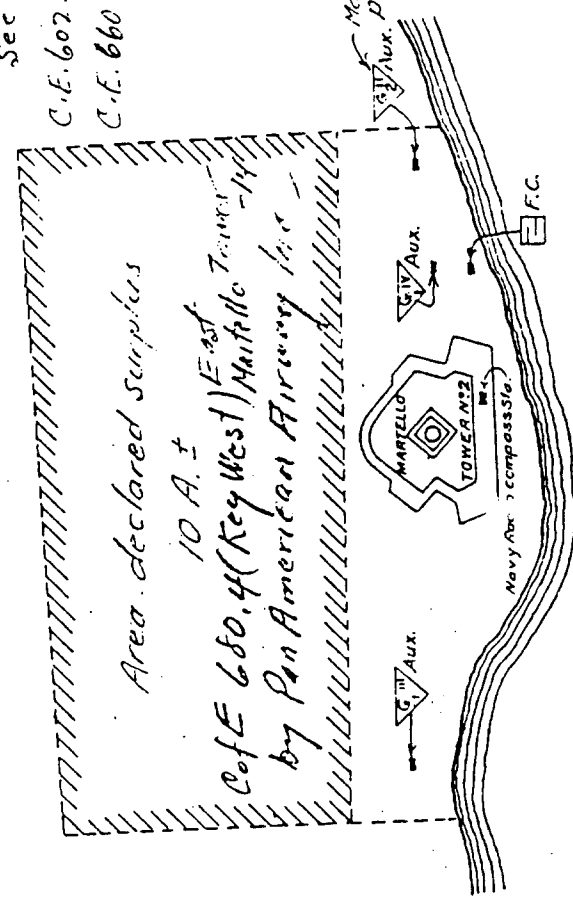 See
C.E. 602.
C.E. 660
Area declared surplus
10 A. ±
C of E 680.4 (Key West) East
Martello Tower -14
by Pan American Airways Inc
G III 1 Aux.
MARTELLO
TOWER Nº2
Navy compass Sta.
G IV Aux.
F.C.
G II 2 Aux.